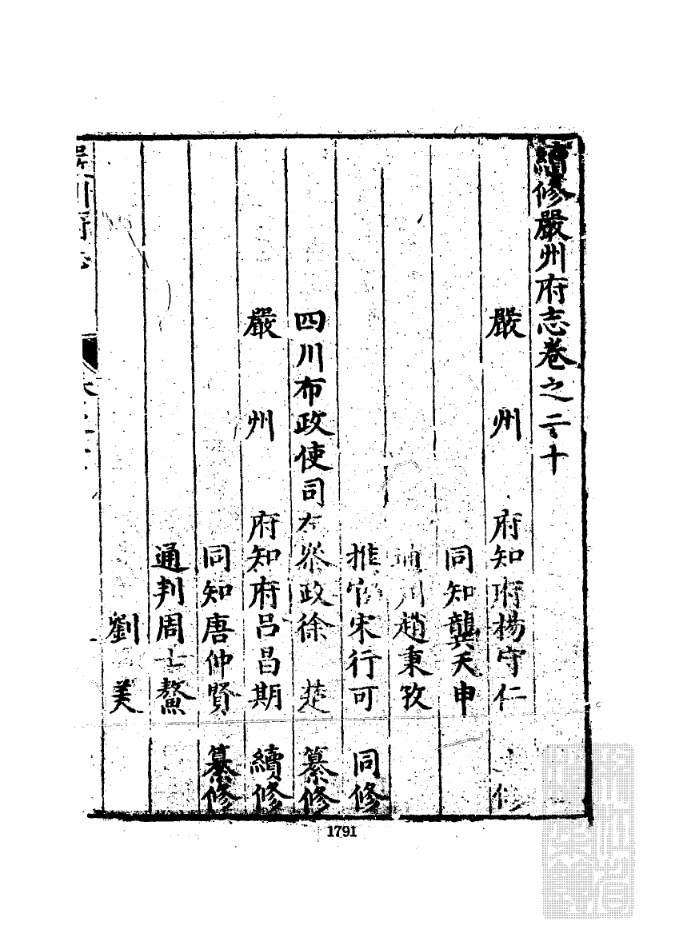 續修嚴州府志卷之二十
嚴州府知府楊守仁修
同知龔天申
通判趙秉牧
推官宋行可同修
四川布政使司左參政徐楚纂修
嚴州府知府呂昌期續修
同知唐仲賢纂修
通判周士鰲
劉美
嚴州府志
1791